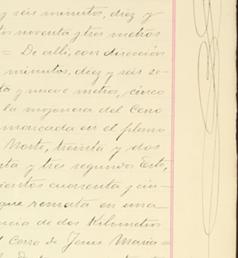 y seis minutos, diez y
tos noventa y tres metros
= De alli, con dirección
minutos, diez y seis se-
ta y nueve metros, cinco
la mojonera del Cerro
marcada en el plano
Norte, treinta y dos
nta y tres segundos Este,
cientos cuarenta y cin-
que remata en una
ncia de dos Kilómetros
l Cerro de Jesus Maria =